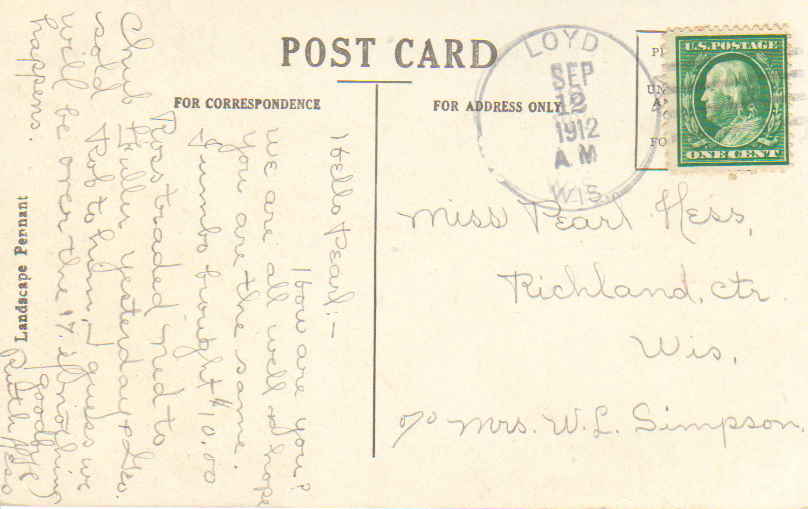 POST CARD
FOR CORRESPONDENCE
FOR ADDRESS ONLY
LOYD
SEP
12
1912
A M
WIS.
U.S. POSTAGE
ONE CENT
Miss Pearl Hess,
Richland, Ctr.
Wis,
c/o Mrs. W. L. Simpson.
Hello Pearl:-
How are you?
we are all well & hope
you are the same.
Jumbo brought $10.00
Ross traded Ned to
Chub Fuller yesterday & Geo.
sold Tub to him, I guess we
will be over the 17. if nothing
happens.
goodbye
Ruth Hess
Landscape Pennant